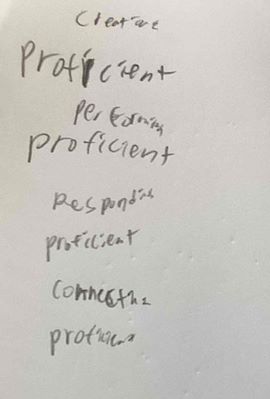 Creative
Proficient
Performing
proficient
Responding
proficient
Connecting
proficient